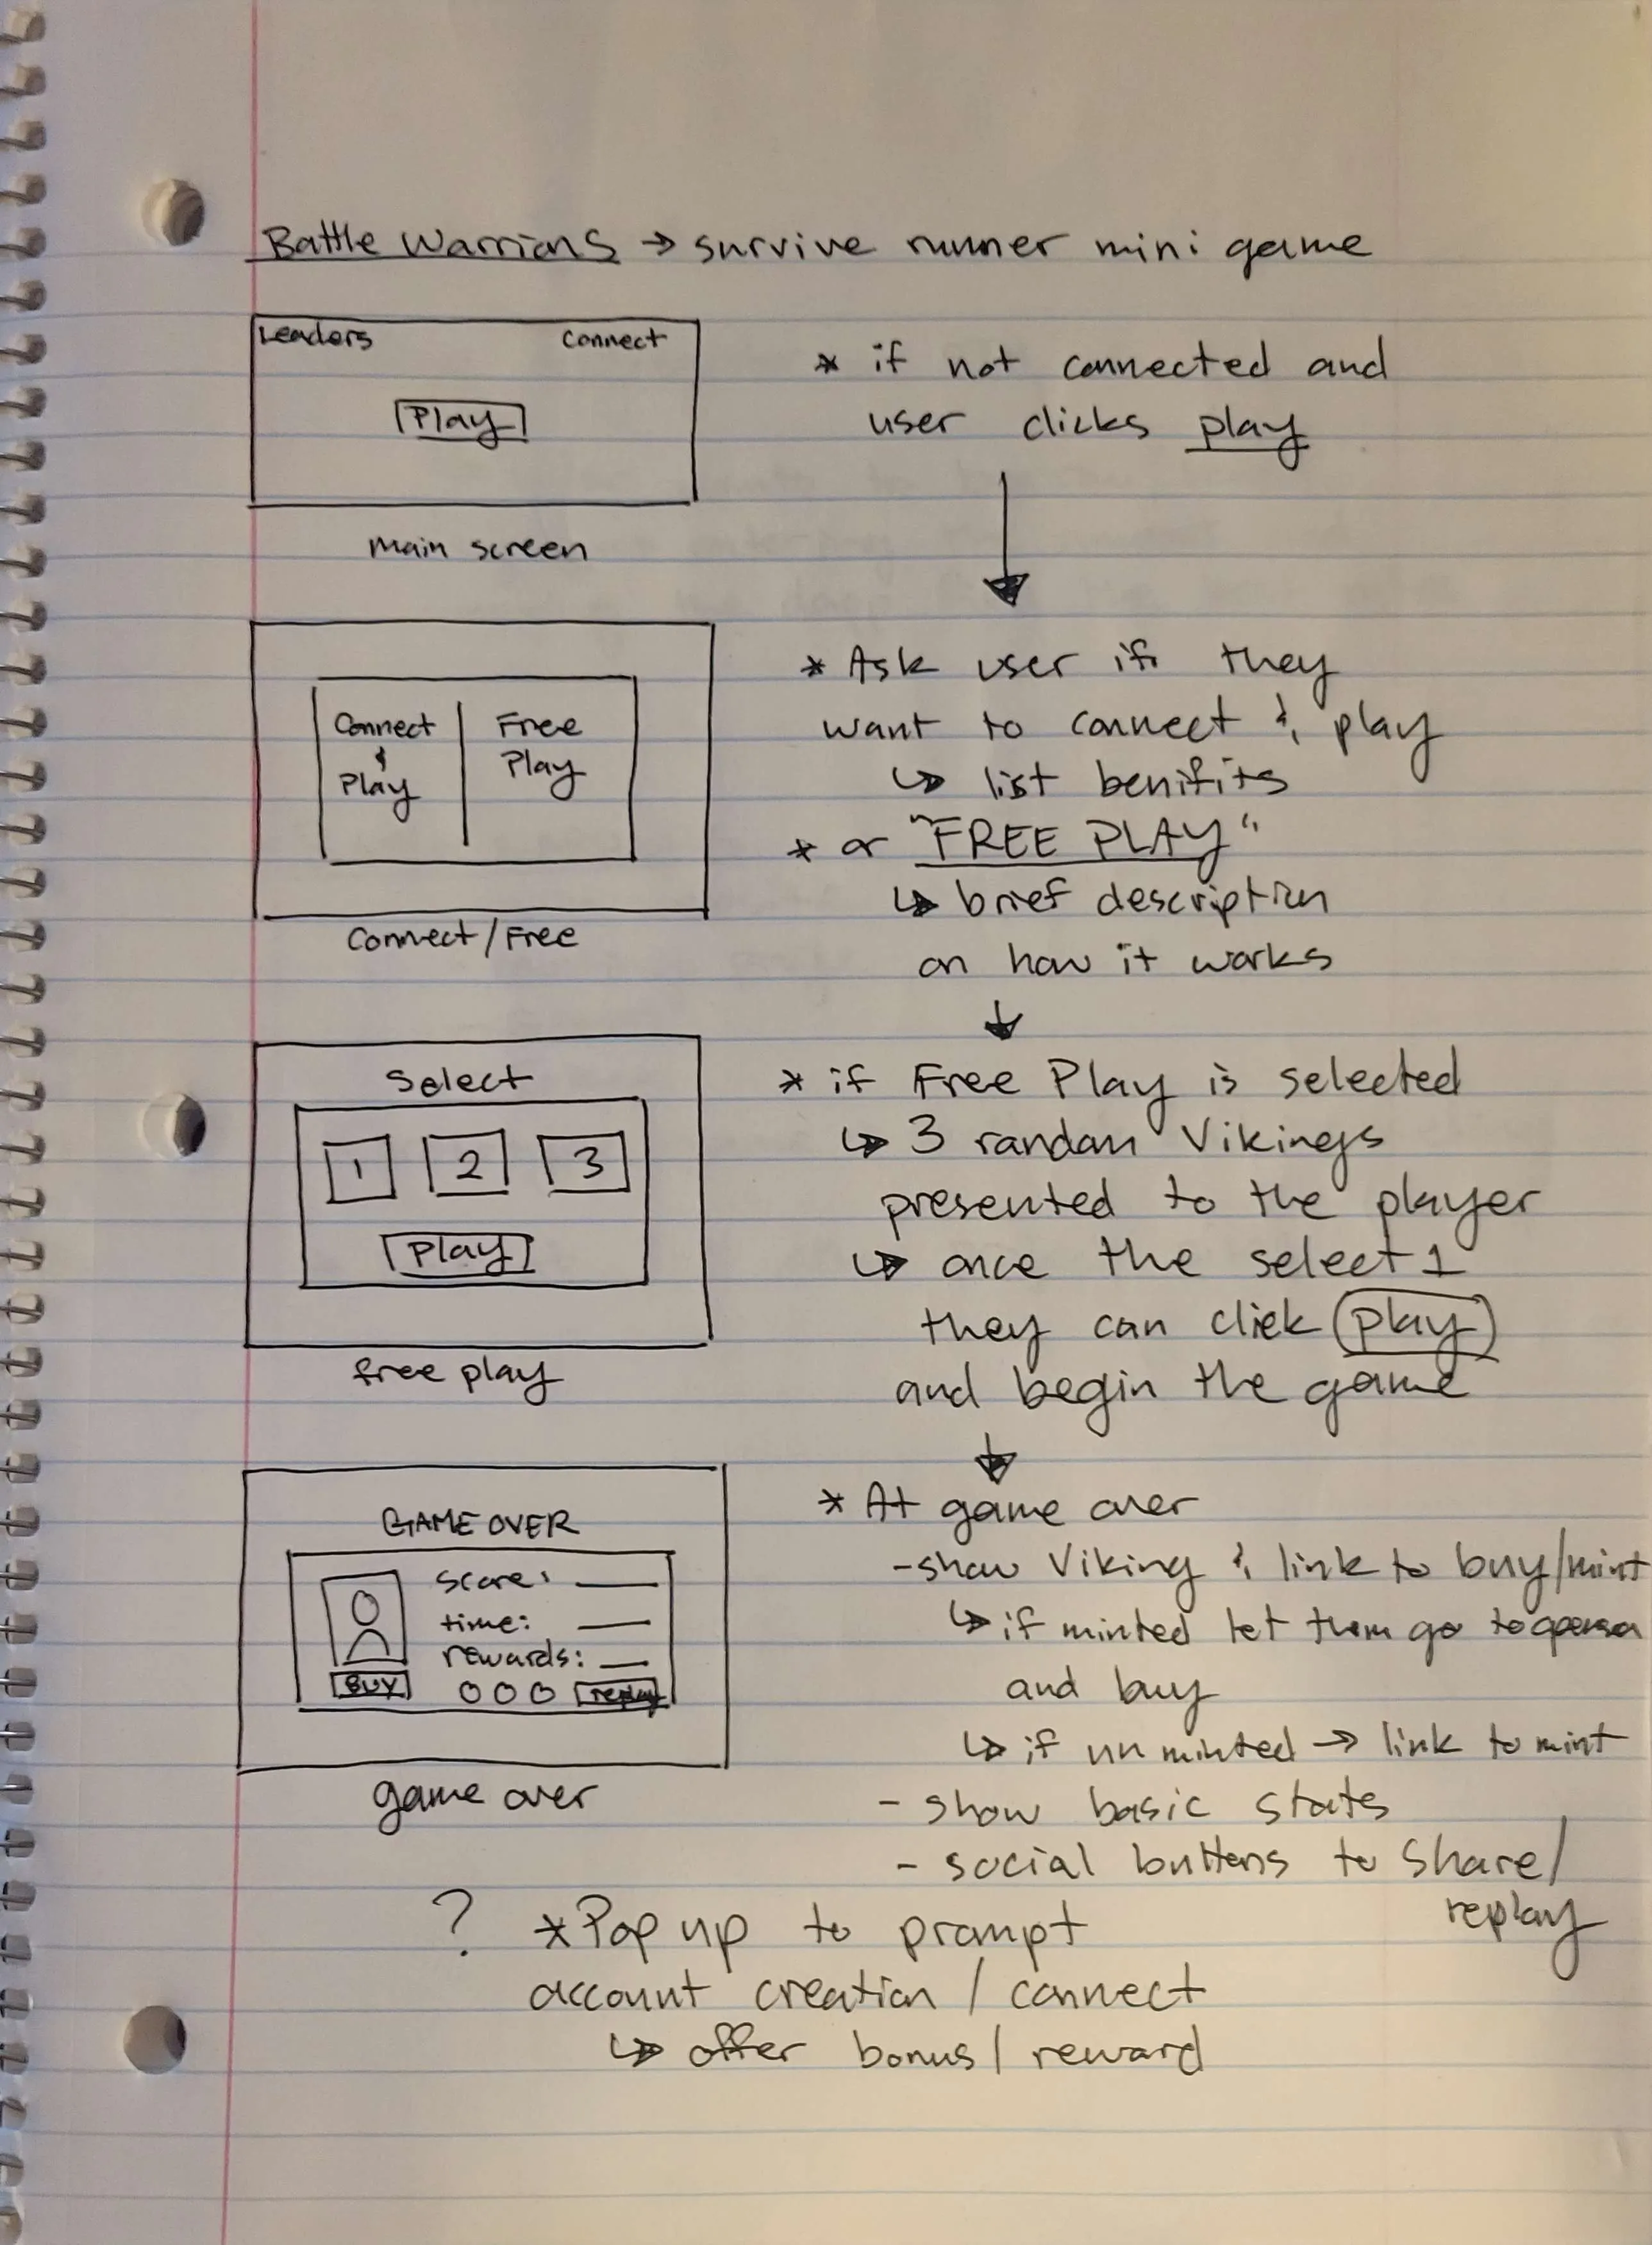 Battle Warriors → survive runner mini game
Leaders Connect
Play
main screen
* if not connected and
user clicks play
Connect & Play
Free Play
Connect/Free
* Ask user if they
want to connect & play
↳ list benifits
* or "FREE PLAY"
↳ brief description
on how it works
Select
1 2 3
Play
free play
* if Free Play is selected
↳ 3 random Vikings
presented to the player
↳ once the select 1
they can click play
and begin the game
GAME OVER
score:
time:
rewards:
BUY replay
game over
* At game over
- show Viking & link to buy/mint
↳ if minted let them go to
and buy
↳ if unminted → link to mint
- show basic stats
- social buttons to share/
replay
? * Pop up to prompt
account creation / connect
↳ offer bonus/reward